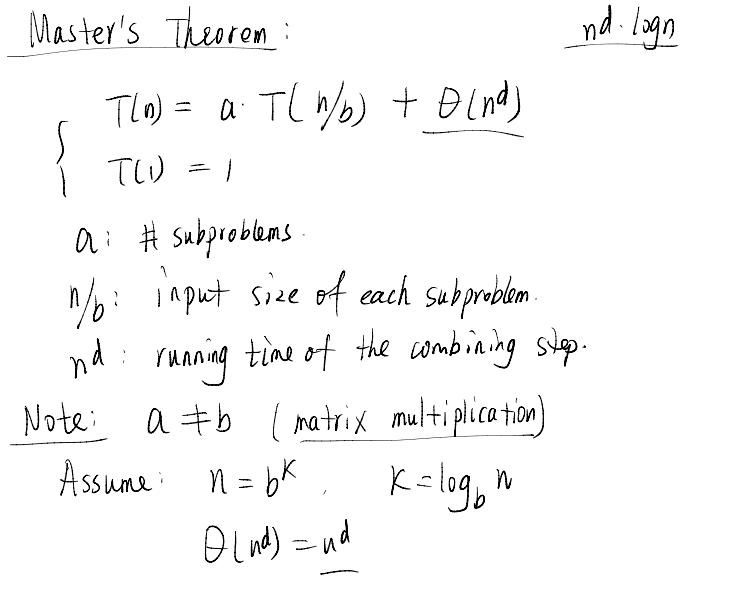 Master's Theorem :
nd · logn
T(n) = a · T(n/b) + θ(n^d)
T(1) = 1
a : # subproblems.
n/b : input size of each subproblem.
n^d : running time of the combining step.
Note: a ≠ b (matrix multiplication)
Assume: n = b^k , k = log_b n
θ(n^d) = n^d